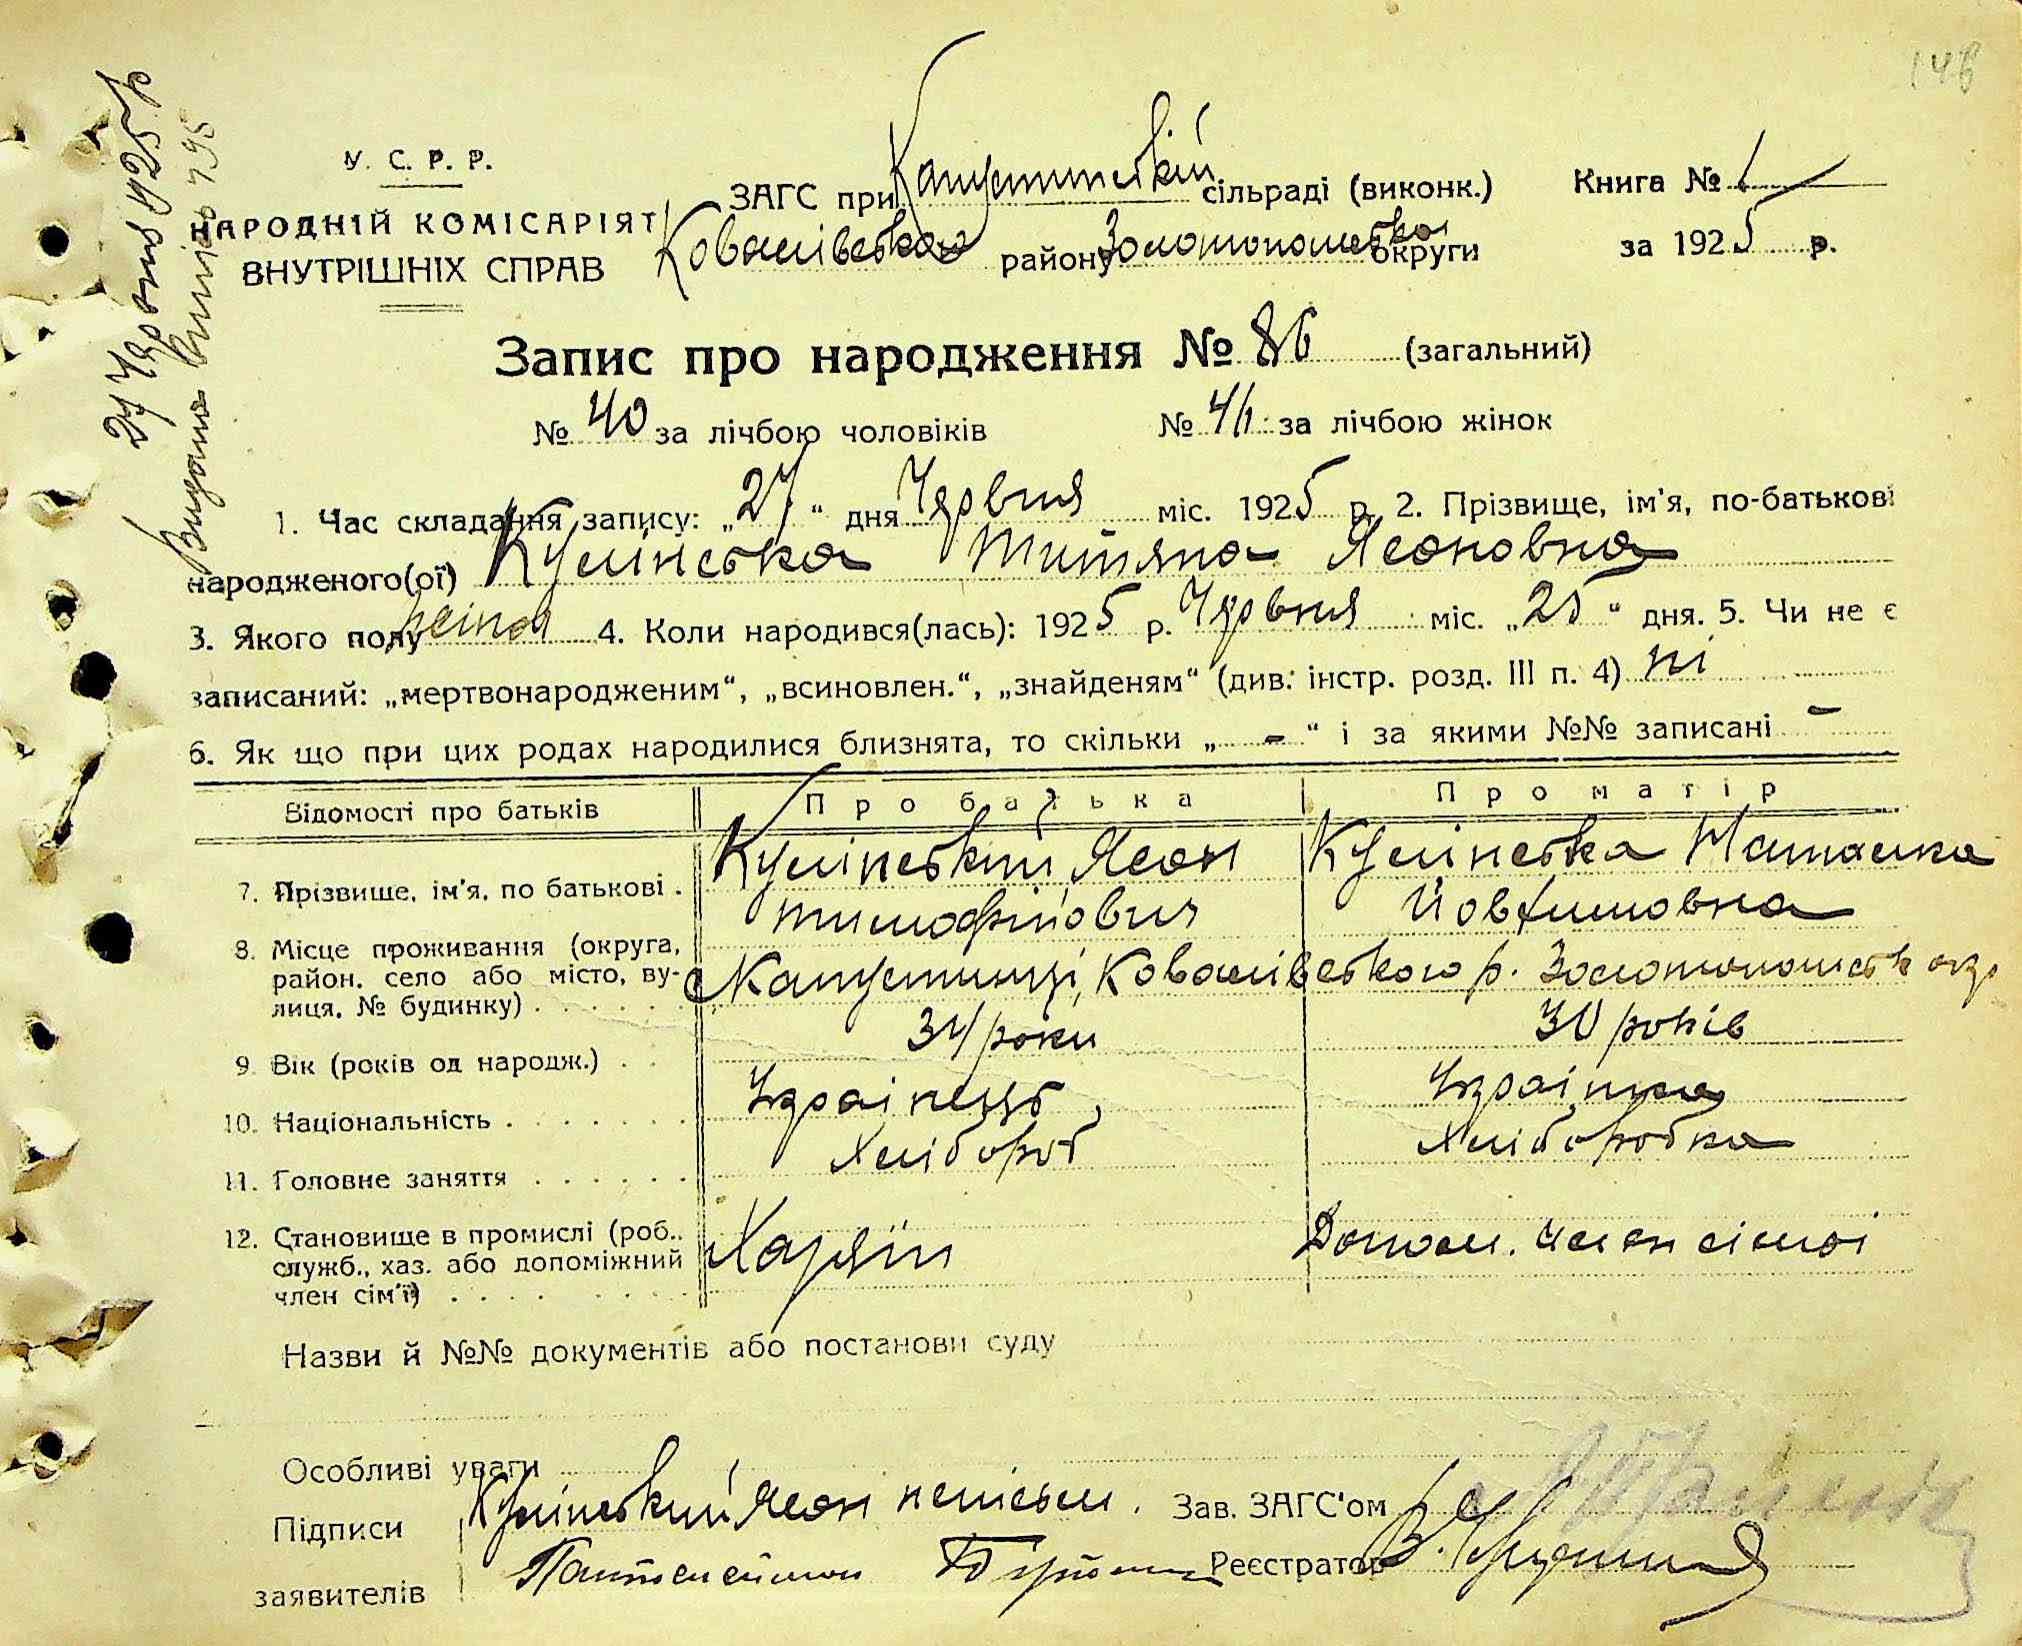 148
У. С. Р. Р.
НАРОДНІЙ КОМІСАРІЯТ
ВНУТРІШНІХ СПРАВ
ЗАГС при Капустинській сільраді (виконк.)
Ковалівського району Золотоношсько округи
Книга № 1
за 1925 р.
27 Червня 1925 р
Видана випись 795
Запис про народження № 86 (загальний)
№ 40 за лічбою чоловіків № 46 за лічбою жінок
1. Час складання запису: „27“ дня Червня міс. 1925 р. 2. Прізвище, ім'я, по-батькові
народженого(ої) Кулінська Титяна Леоновна
3. Якого полу 4. Коли народився(лась): 1925 р. Червня міс. „25“ дня. 5. Чи не є
записаний: „мертвонародженим“, „всиновлен.“, „знайденям“ (див. інстр. розд. III п. 4) ні
6. Як що при цих родах народилися близнята, то скільки „ - “ і за якими №№ записані -
Відомості про батьків Про батька Про матір
7. Прізвище, ім'я, по батькові . Кулінський Леон Кулінська Наталка
Тимофійович Йовхимовна
8. Місце проживання (округа,
район, село або місто, вулиця, № будинку) . . . . . . с Капустинці, Ковалівського р. Золотоношськ окр
9. Вік (років од народж.) . . 34 роки 30 років
10. Національність . . . . . . . Українець Українка
11. Головне заняття . . . . . . Хлібороб Хліборобка
12. Становище в промислі (роб.,
служб., хаз. або допоміжний
член сім'ї) . . . . . . . . Хазяїн Допом. член сімьї
Назви й №№ документів або постанови суду
Особливі уваги
Підписи
заявителів
Кулінський Леон неписьм.
Зав. ЗАГС'ом
Реєстратор В.